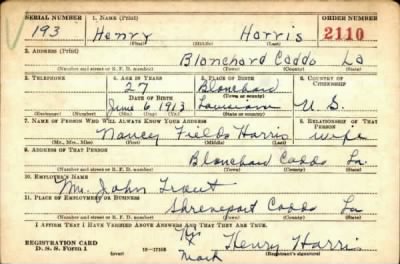 SERIAL NUMBER 1. NAME (Print) ORDER NUMBER
193 Henry Harris 2110
(First) (Middle) (Last)
2. ADDRESS (Print)
Blanchard Caddo La
(Number and street or R. F. D. number) (Town) (County) (State)
3. TELEPHONE 4. AGE IN YEARS 5. PLACE OF BIRTH 6. COUNTRY OF CITIZENSHIP
27 Blanchard
DATE OF BIRTH (Town or county)
June 6 1913 Louisiana U. S.
(Exchange) (Number) (Mo.) (Day) (Yr.) (State or country)
7. NAME OF PERSON WHO WILL ALWAYS KNOW YOUR ADDRESS 8. RELATIONSHIP OF THAT PERSON
Nancy Fields Harris wife
(Mr., Mrs., Miss) (First) (Middle) (Last)
9. ADDRESS OF THAT PERSON
Blanchard Caddo La.
(Number and street or R. F. D. number) (Town) (County) (State)
10. EMPLOYER'S NAME
Mr. John
11. PLACE OF EMPLOYMENT OR BUSINESS
Shreveport Caddo La
(Number and street or R. F. D. number) (Town) (County) (State)
I AFFIRM THAT I HAVE VERIFIED ABOVE ANSWERS AND THAT THEY ARE TRUE.
REGISTRATION CARD His
D. S. S. Form 1 (over) X Henry Harris
Mark (Registrant's signature)